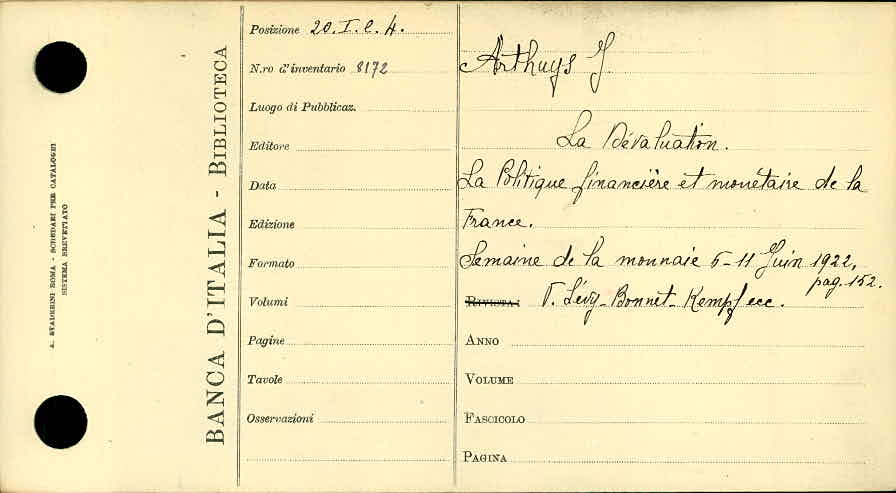 A. STADERINI ROMA - SCHEDARI PER CATALOGHI
SISTEMA BREVETTATO
BANCA D'ITALIA - BIBLIOTECA
Posizione 20. I. C. 4.
N.ro d'inventario 8172
Luogo di Pubblicaz.
Editore
Data
Edizione
Formato
Volumi
Pagine
Tavole
Osservazioni
Arthuys J.
La Dévaluation.
La Politique financière et monétaire de la
France.
Semaine de la monnaie 5-11 Juin 1922,
pag. 152.
RIVISTA: V. Lévy-Bonnet-Kempf ecc.
ANNO
VOLUME
FASCICOLO
PAGINA